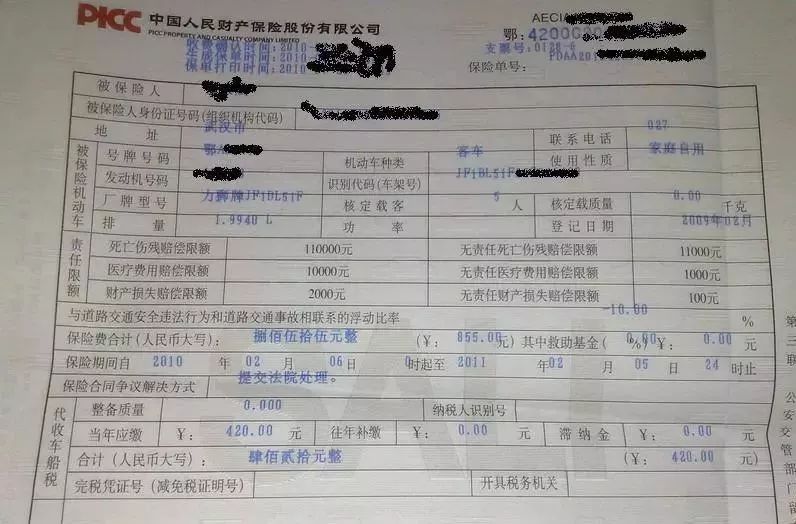 PICC 中国人民财产保险股份有限公司
PICC PROPERTY AND CASUALTY COMPANY LIMITED
AECIA
鄂:4200
收费确认时间:2010-
生成保单时间:2010-
保单打印时间:2010
支票号:0128-6
PDAA201
保险单号:
被保险人
被保险人身份证号码(组织机构代码)
地址 武汉市 联系电话 027
被保险机动车
号牌号码 鄂A 机动车种类 客车 使用性质 家庭自用
发动机号码 识别代码(车架号) JF1BL51F
厂牌型号 力狮牌JF1BL51F 核定载客 5 人 核定载质量 0.00 千克
排量 1.9940 L 功率 登记日期 2009年02月
责任限额
死亡伤残赔偿限额 110000元 无责任死亡伤残赔偿限额 11000元
医疗费用赔偿限额 10000元 无责任医疗费用赔偿限额 1000元
财产损失赔偿限额 2000元 无责任财产损失赔偿限额 100元
与道路交通安全违法行为和道路交通事故相联系的浮动比率 -10.00 %
保险费合计(人民币大写): 捌佰伍拾伍元整 (¥: 855.00 元) 其中救助基金( 0.00 %)¥: 0.00 元
保险期间自 2010 年 02 月 06 日 0 时起至 2011 年 02 月 05 日 24 时止
保险合同争议解决方式 提交法院处理。
代收车船税
整备质量 0.000 纳税人识别号
当年应缴 ¥: 420.00 元 往年补缴 ¥: 0.00 元 滞纳金 ¥: 0.00 元
合计(人民币大写): 肆佰贰拾元整 (¥: 420.00 元)
完税凭证号(减免税证明号) 开具税务机关
第三联
公安交管部门留